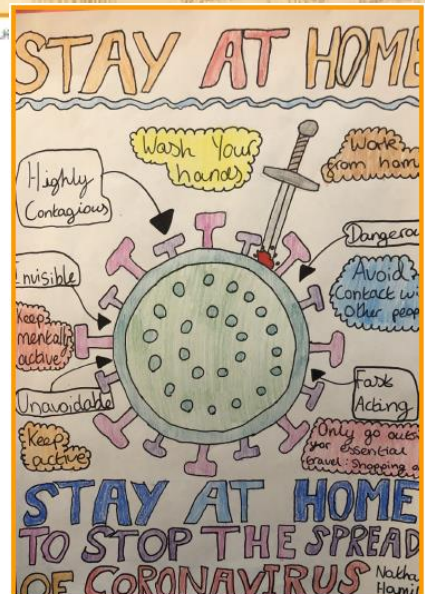 STAY AT HOME
Wash Your
hands
Work
from home
Highly
Contagious
Dangerou
Invisible
Avoid
Contact wi
Other peop
Keep
mentally
active
Unavoidable
Fast
Acting
Keep
active
Only go outs
for essential
travel: Shopping a
STAY AT HOME
TO STOP THE SPREAD
OF CORONAVIRUS
Hamil